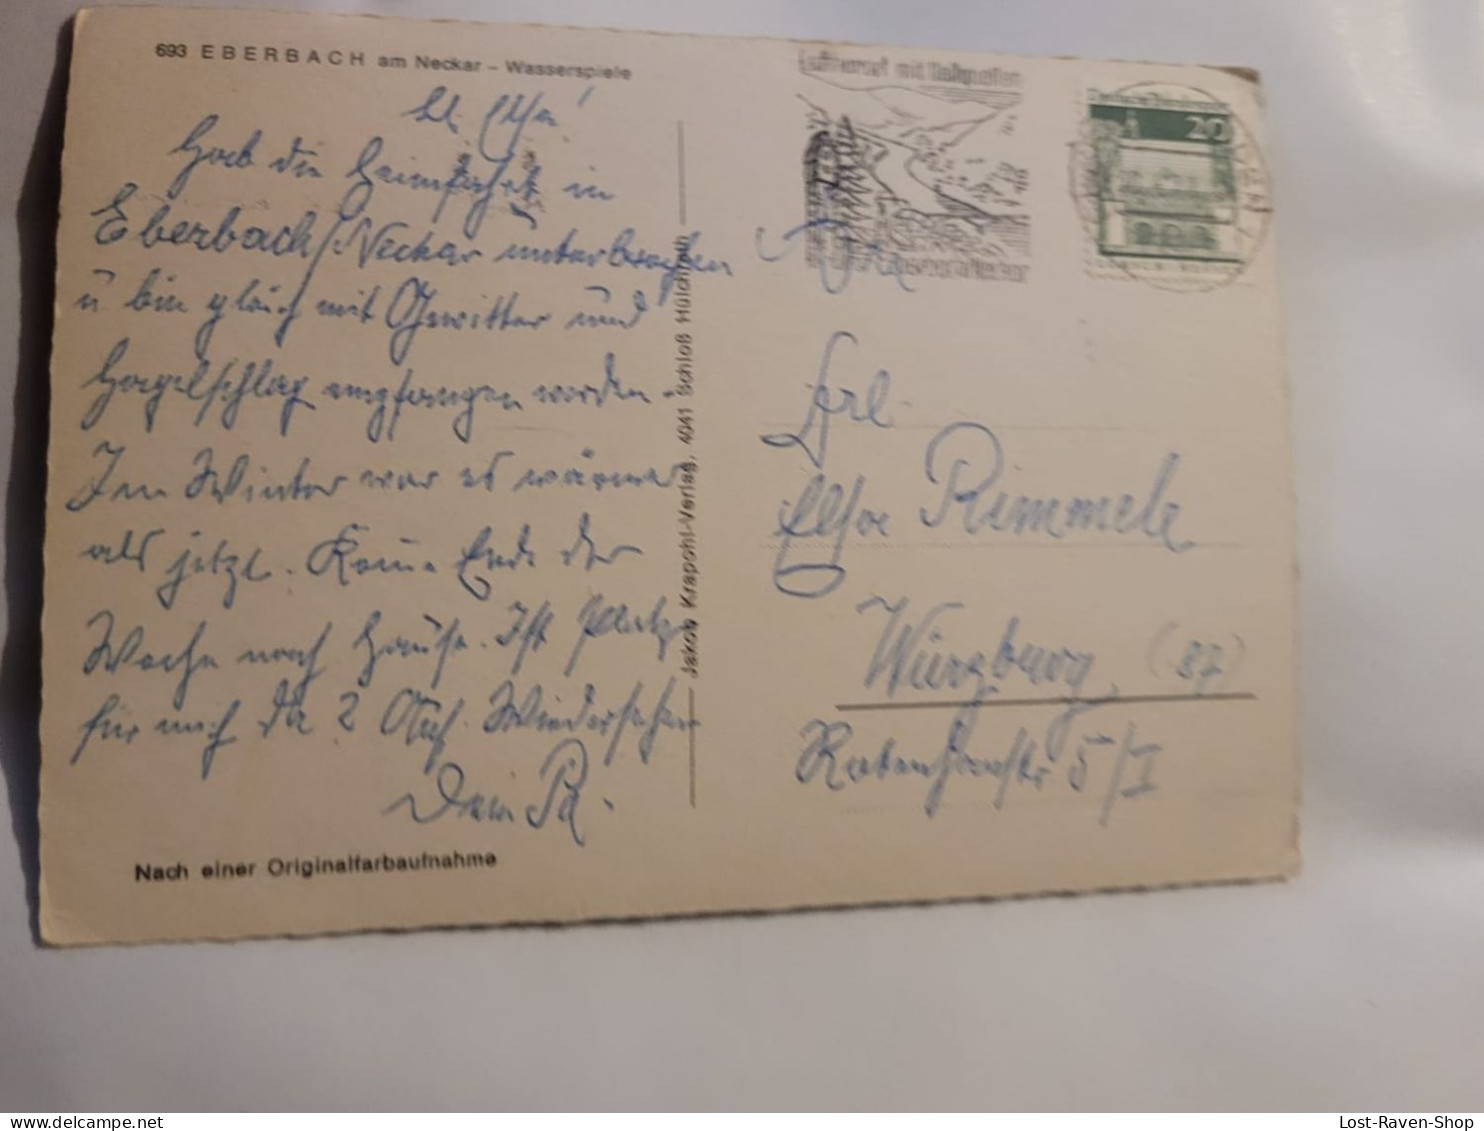 693 EBERBACH am Neckar – Wasserspiele
Hab die Heimfahrt in
Eberbach/Neckar unterbrochen
u bin gleich mit Gewitter und
Hagelschlag empfangen worden.
Im Winter war es wärmer
als jetzt. Komme Ende der
Woche nach Hause. Ist Platz
für mich da? Auf Wiedersehen
Dein
Nach einer Originalfarbaufnahme
Jakob Krapohl-Verlag, 4041 Schloß Hülchrath
Luftkurort mit Heilquellen
20
An
Frl
Rimmele
Würzburg (87)
5/I
Lost-Raven-Shop